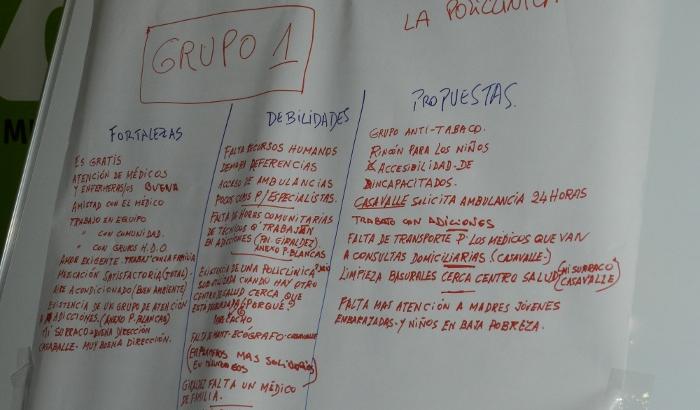 LA POLICLINICA
GRUPO 1
FORTALEZAS
ES GRATIS
ATENCIÓN DE MÉDICOS
Y ENFERMERAS/OS BUENA
AMISTAD CON EL MÉDICO
TRABAJO EN EQUIPO
" CON COMUNIDAD.
" CON GRUPOS H.D.O.
MEDICACIÓN SATISFACTORIA (TOTAL)
AIRE ACONDICIONADO/(BIEN AMBIENTE)
EXISTENCIA DE UN GRUPO DE ATENCIÓN
ADICCIONES. (ANEXO P. BLANCAS)
MI SURRACO BUENA DIRECCIÓN
CASABALLE. MUY BUENA DIRECCIÓN.
DEBILIDADES
FALTA RECURSOS HUMANOS
DEMORA REFERENCIAS
ACCESO DE AMBULANCIAS
POCOS CUPOS P/ESPECIALISTAS.
FALTA DE HORAS COMUNITARIAS
DE TÉCNICOS Q' TRABAJAN
EN ADICCIONES (EN GIRALDEZ)
ANEXO P. BLANCAS
EXISTENCIA DE UNA POLICLÍNICA
SUB UTILIZADA CUANDO HAY OTRO
CENTRO DE SALUD CERCA QUE
ESTA DESBORDADA ¿PORQUE?
FALTA DE MANT. ECÓGRAFO-CASAVALLE
MAS SOLIDARIOS
GIRALDEZ FALTA UN MÉDICO
DE FAMILIA.
PROPUESTAS.
GRUPO ANTI-TABACO.
RINCÓN PARA LOS NIÑOS
ACCESIBILIDAD-DE
DISCAPACITADOS.
CASAVALLE SOLICITA AMBULANCIA 24 HORAS
TRABAJO CON ADICIONES
FALTA DE TRANSPORTE P. LOS MÉDICOS QUE VAN
A CONSULTAS DOMICILIARIAS (CASAVALLE-)
LIMPIEZA BASURALES CERCA CENTRO SALUD (MI SURRACO
CASAVALLE)
FALTA MAS ATENCIÓN A MADRES JÓVENES
EMBARAJADAS-Y NIÑOS EN BAJA POBREZA.